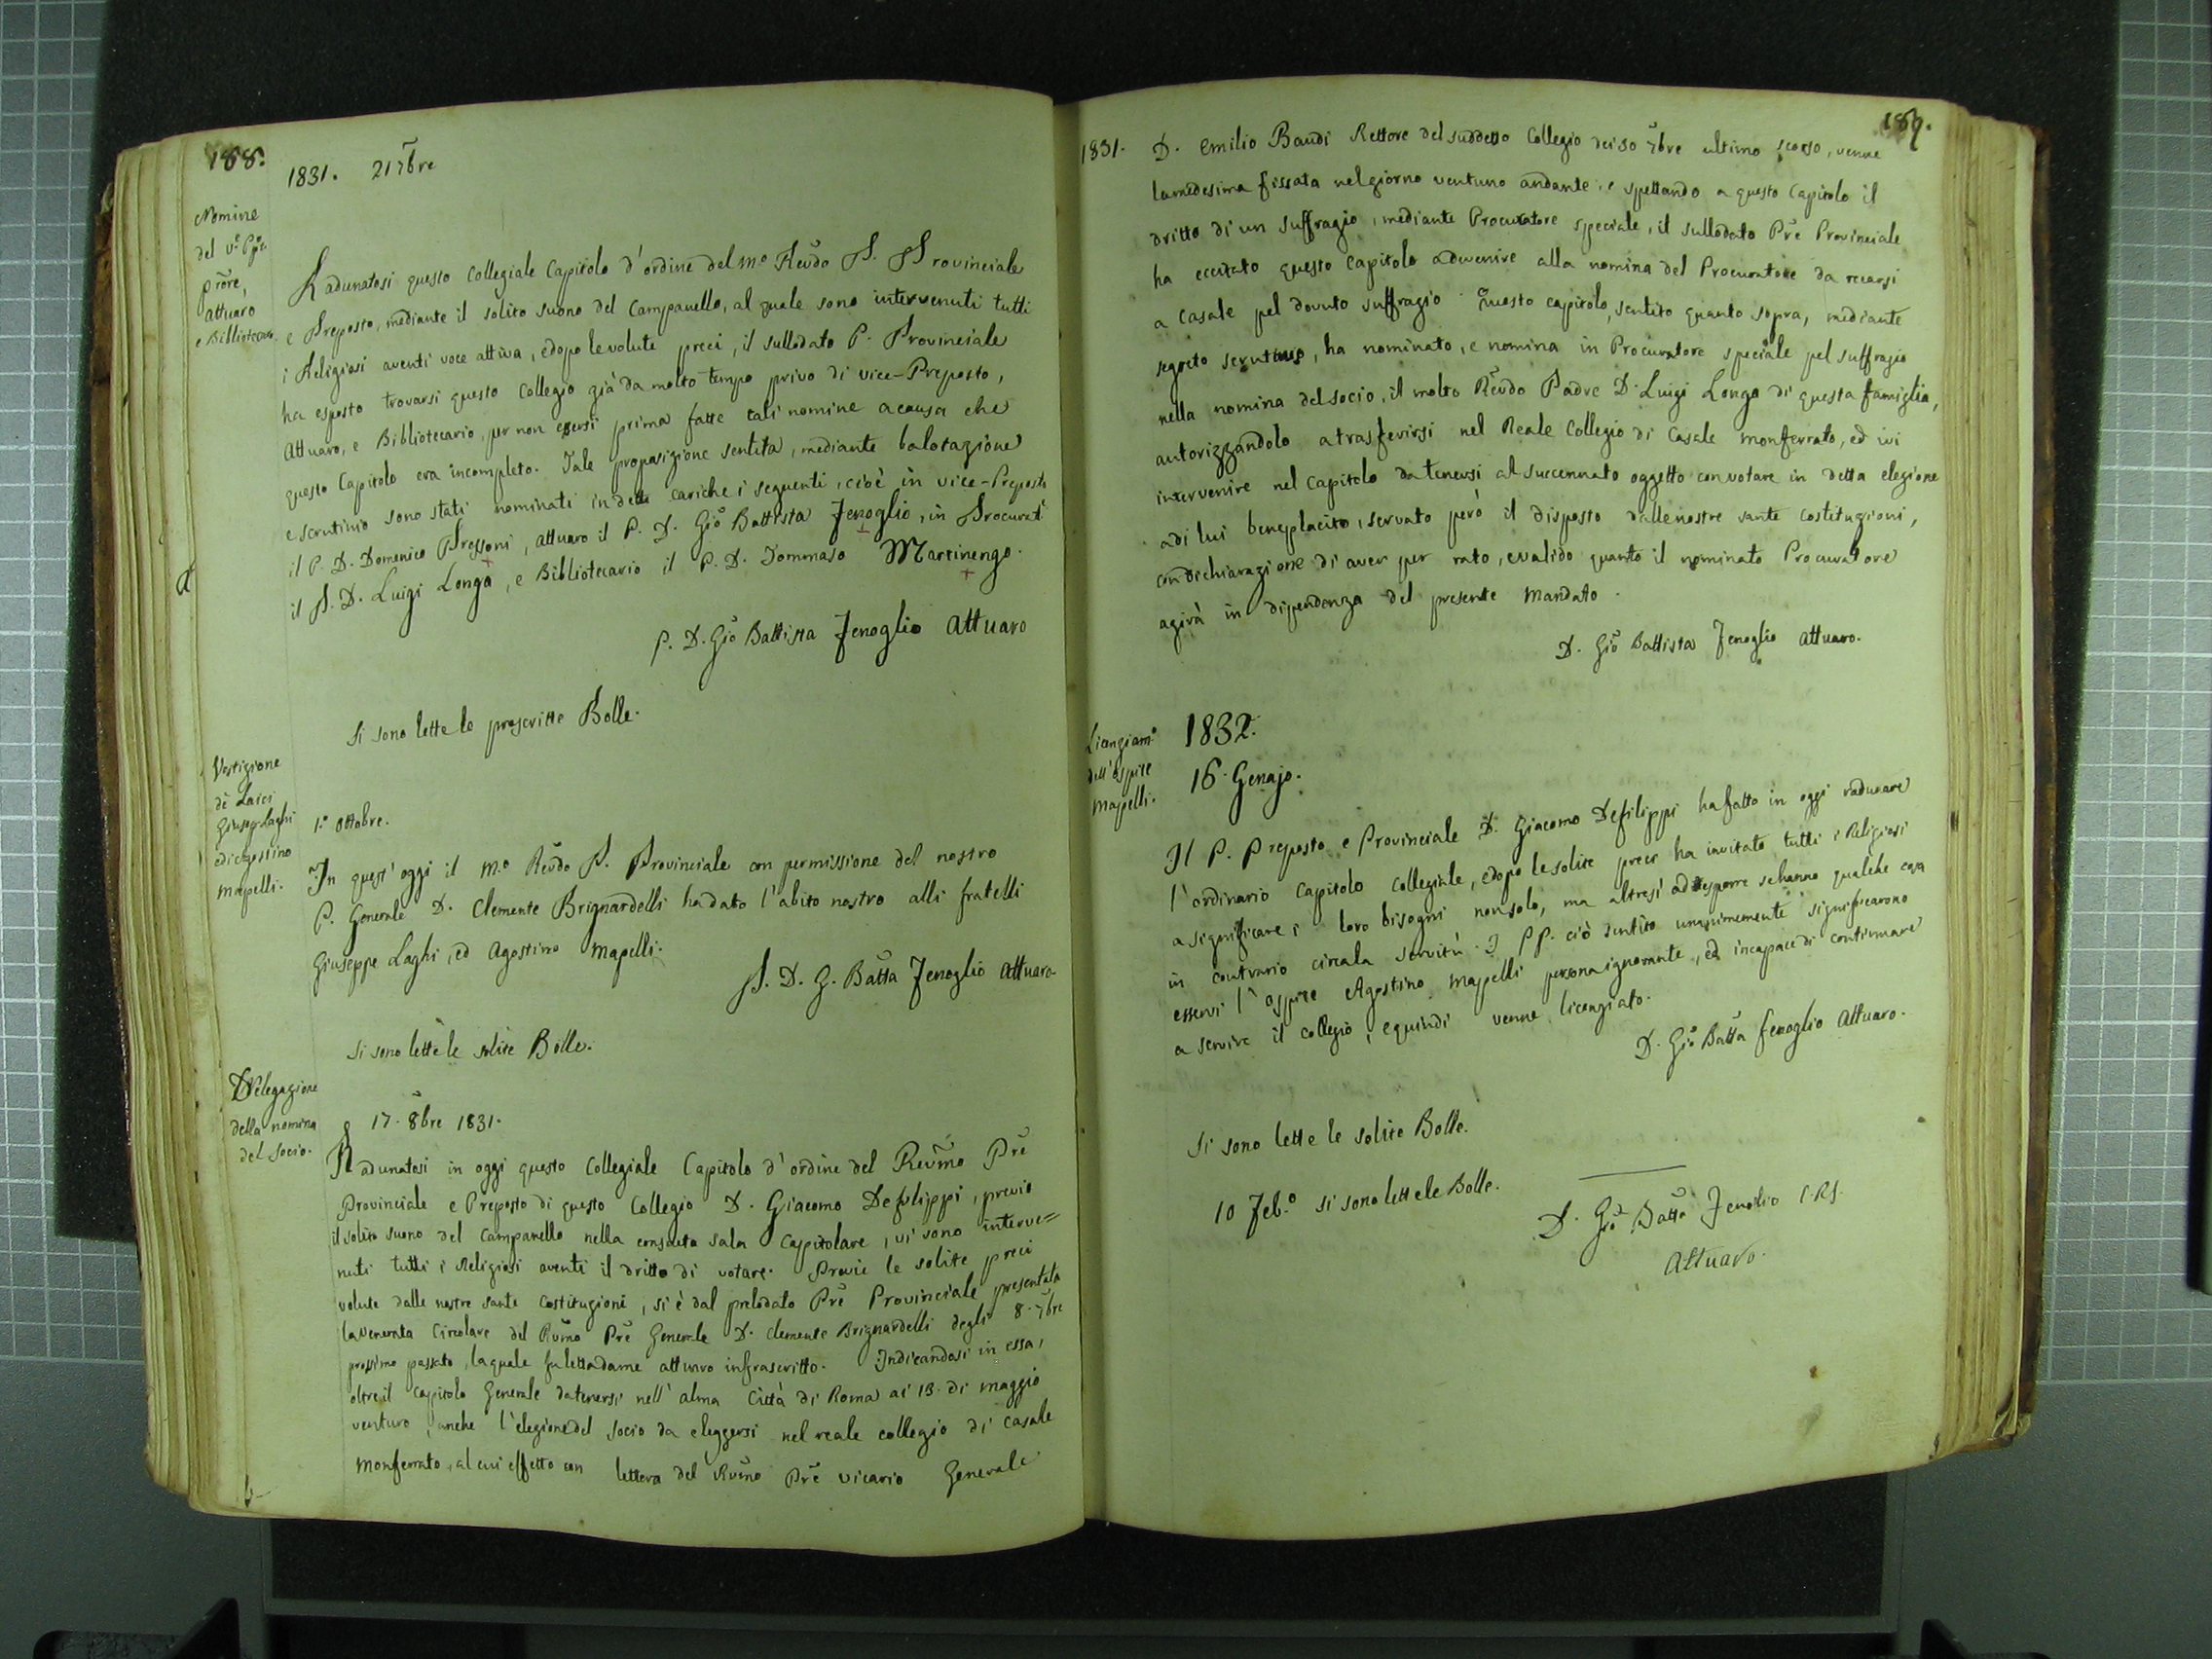 188.
1831. 21 7bre
Nomine
del Ve Ppto
prõre,
attuaro
e Bibliotecar.
Radunatosi questo Collegiale Capitolo d'ordine del m.o Reũdo P. Provinciale
e Preposto, mediante il solito suono del Campanello, al quale sono intervenuti tutti
i Religiosi aventi voce attiva, e dopo le volute preci, il sullodato P. Provinciale
ha esposto trovarsi questo Collegio già da molto tempo privo di vice-Preposto,
Attuaro, e Bibliotecario, per non essersi prima fatte tali nomine a causa che
questo Capitolo era incompleto. Tale proposizione sentita, mediante balotazione
e scrutinio sono stati nominati in dette cariche i seguenti, cioè in vice-Preposto
il P. D. Domenico Pressoni, attuaro il P. D. Gio Battista Fenoglio, in Procurat.
il P. D. Luigi Longa, e Bibliotecario il P. D. Tommaso Martinengo.
P. D. Gio Battista Fenoglio Attuaro
Si sono lette le prescritte Bolle.
Vestizione
dè Laici
Giusep. Laghi
ed Agostino
Mapelli.
1.o Ottobre.
In quest'oggi il m.o Reũdo P. Provinciale con permissione del nostro
P. Generale D. Clemente Brignardelli ha dato l'abito nostro alli fratelli
Giuseppe Laghi, ed Agostino Mapelli.
P. D. G. Batta Fenoglio Attuaro
Si sono lette le solite Bolle.
Delegazione
della nomina
del Socio.
17. 8bre 1831.
Radunatosi in oggi questo Collegiale Capitolo d'ordine del Reũmo Prẽ
Provinciale e Preposto di questo Collegio D. Giacomo Defilippi, previo
il solito suono del Campanello nella consueta sala Capitolare, vi sono interve=
nuti tutti i Religiosi aventi il dritto di votare. Previe le solite preci
volute dalle nostre sante Costituzioni, si è dal prelodato Prẽ Provinciale presentata
la venerata Circolare del Rũmo Prẽ Generale D. Clemente Brignardelli degli 8. 7bre
prossimo passato, la quale fu letta da me attuaro infrascritto. Indicandosi in essa,
oltre il Capitolo Generale da tenersi nell'alma Città di Roma ai 13. di maggio
venturo, anche l'elezione del Socio da eleggersi nel reale collegio di Casale
Monferrato, al cui effetto con lettera del Rũmo Prẽ Vicario Generale
189.
1831. D. Emilio Baudi Rettore del suddetto Collegio dei 30 7bre ultimo scorso, venne
la medesima fissata nel giorno ventuno andante, e spettando a questo Capitolo il
dritto di un suffragio, mediante Procuratore speciale, il sullodato Prẽ Provinciale
ha eccitato questo Capitolo a devenire alla nomina del Procuratore da recarsi
a Casale pel dovuto suffragio. Questo capitolo, sentito quanto sopra, mediante
segreto scrutinio, ha nominato, e nomina in Procuratore speciale pel suffragio
nella nomina del socio, il molto Reũdo Padre D. Luigi Longa di questa famiglia,
autorizzandolo a trasferirsi nel Reale Collegio di Casale Monferrato, ed ivi
intervenire nel Capitolo da tenersi al succennato oggetto con votare in detta elezione
a di lui beneplacito, servato però il disposto dalle nostre sante Costituzioni,
con dichiarazione di aver per rato, e valido quanto il nominato Procuratore
agirà in dipendenza del presente Mandato.
D. Gio Battista Fenoglio Attuaro.
Licenziam.o
dell'Ospite
Mapelli.
1832.
16. Genajo.
Il P. Preposto e Provinciale D. Giacomo Defilippi ha fatto in oggi radunare
l'ordinario Capitolo Collegiale, e dopo le solite preci ha invitato tutti i Religiosi
a significare i loro bisogni non solo, ma altresì ad esporre se hanno qualche cosa
in contrario circa la servitù. I PP. ciò sentito unanimemente significarono
esservi l'ospite Agostino Mapelli persona ignorante, ed incapace di continuare
a servire il collegio, e quindi venne licenziato.
D. Gio Batta Fenoglio Attuaro.
Si sono lette le solite Bolle.
10 Feb.o si sono lette le Bolle.
D. Gio Batta Fenolio C.R.S.
Attuaro.